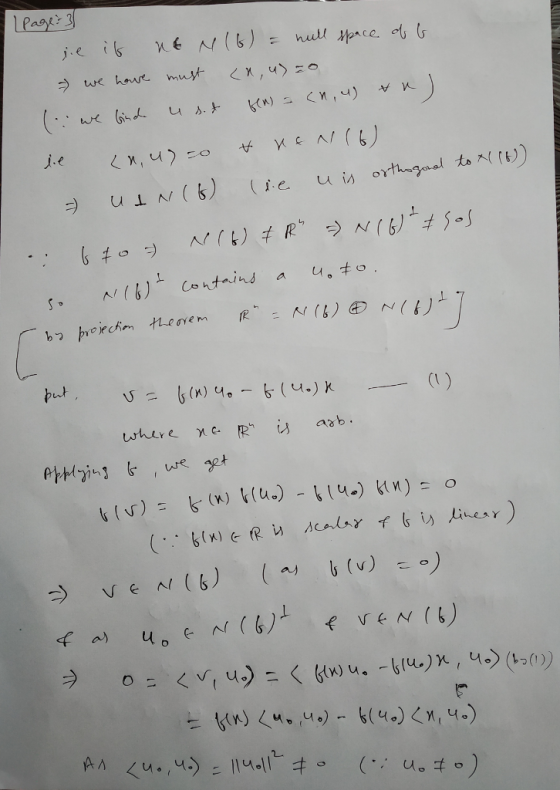 Page: 3
i.e if x ∈ N(f) = null space of f
⇒ we have must <x, u> = 0
(∵ we find u s.t f(x) = <x, u> ∀ x)
i.e <x, u> = 0 ∀ x ∈ N(f)
⇒ u ⊥ N(f) (i.e u is orthogonal to N(f))
∵ f ≠ 0 ⇒ N(f) ≠ ℝⁿ ⇒ N(f)^⊥ ≠ {0}
So N(f)^⊥ contains a u₀ ≠ 0.
[by projection theorem ℝⁿ = N(f) ⊕ N(f)^⊥]
put, v = f(x)u₀ - f(u₀)x —— (1)
where x ∈ ℝⁿ is arb.
Applying f, we get
f(v) = f(x) f(u₀) - f(u₀) f(x) = 0
(∵ f(x) ∈ ℝ is scalar & f is linear)
⇒ v ∈ N(f) (as f(v) = 0)
& as u₀ ∈ N(f)^⊥ & v ∈ N(f)
⇒ 0 = <v, u₀> = < f(x)u₀ - f(u₀)x, u₀> (by (1))
= f(x) <u₀, u₀> - f(u₀) <x, u₀>
As <u₀, u₀> = ||u₀||² ≠ 0 (∵ u₀ ≠ 0)